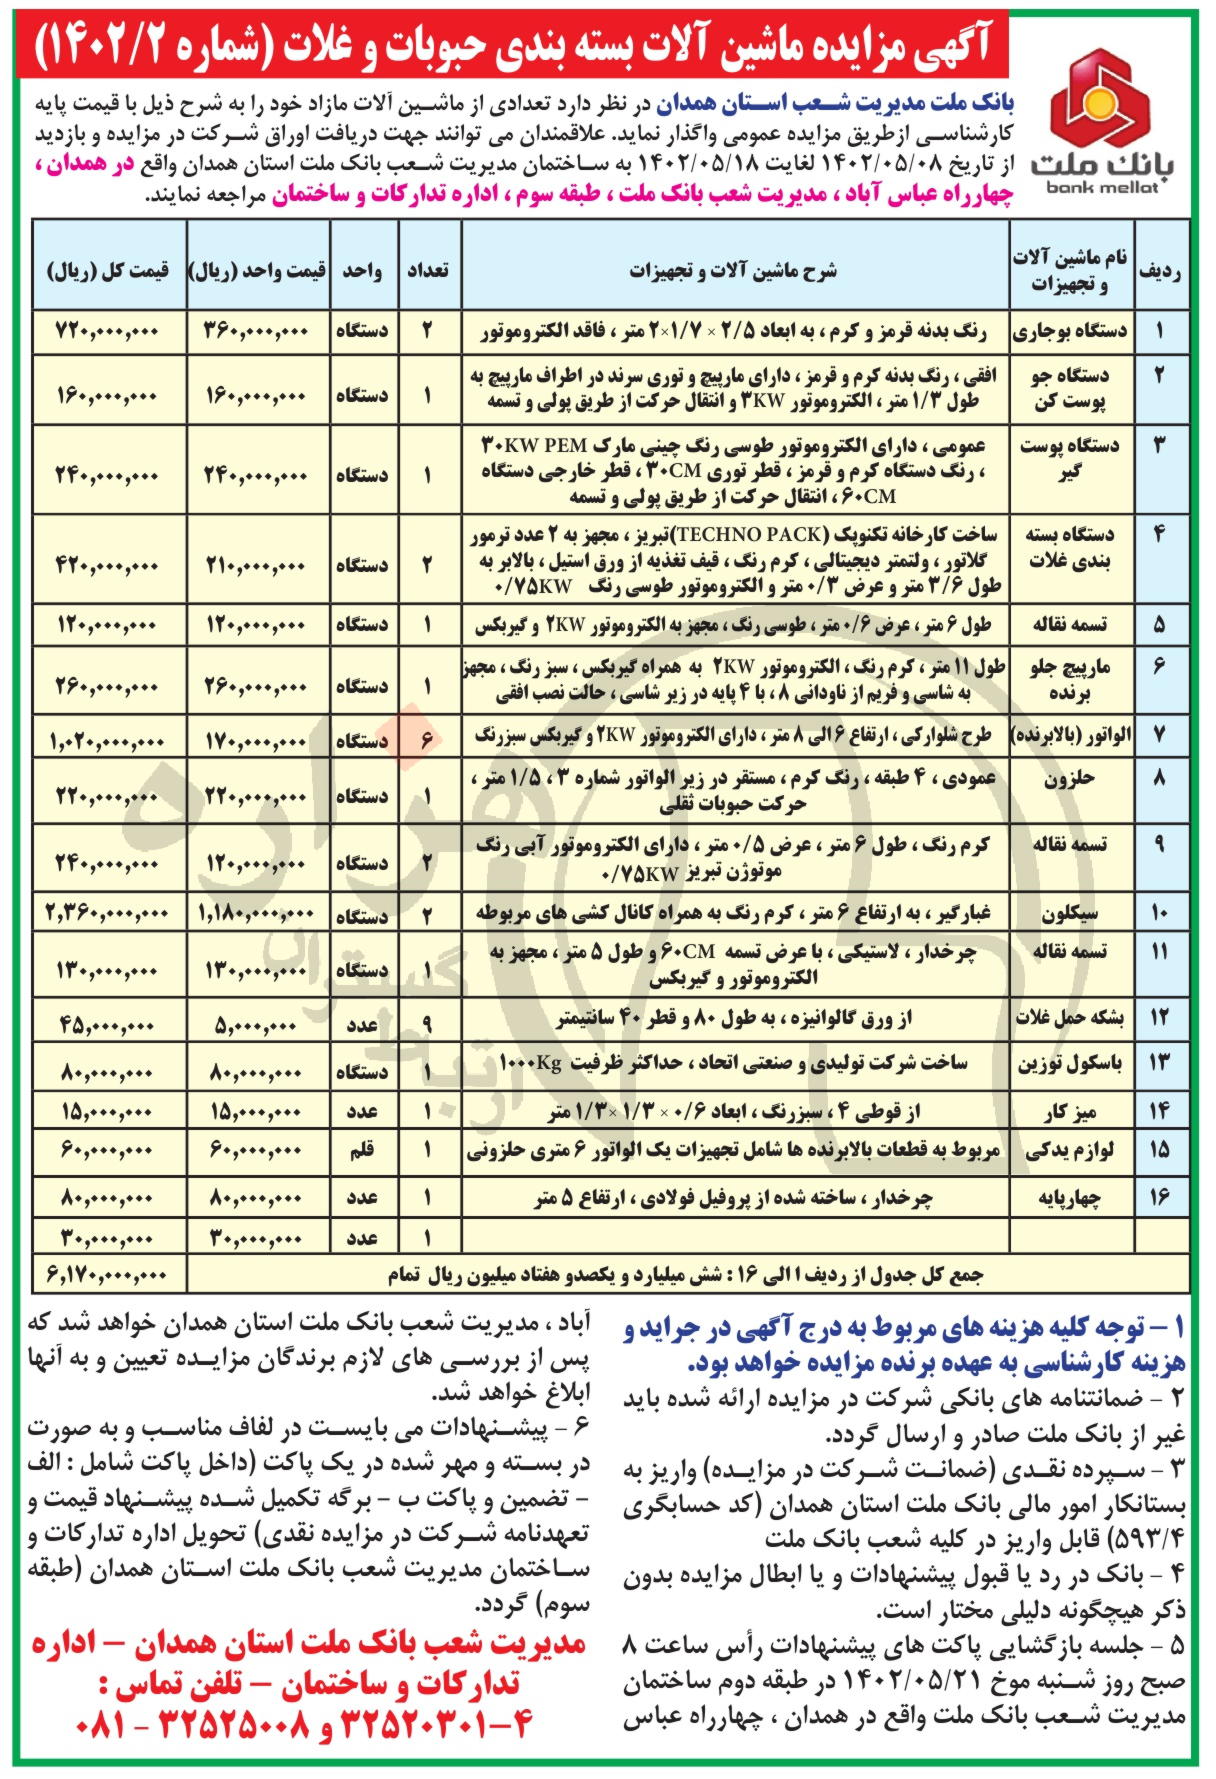 آگهی مزایده ماشین آلات بسته بندی حبوبات و غلات (شماره ۱۴۰۲/۲)
بانک ملت
bank mellat
بانک ملت مدیریت شعب استان همدان در نظر دارد تعدادی از ماشین آلات مازاد خود را به شرح ذیل با قیمت پایه
کارشناسی ازطریق مزایده عمومی واگذار نماید. علاقمندان می توانند جهت دریافت اوراق شرکت در مزایده و بازدید
از تاریخ ۱۴۰۲/۰۵/۰۸ لغایت ۱۴۰۲/۰۵/۱۸ به ساختمان مدیریت شعب بانک ملت استان همدان واقع در همدان ،
چهارراه عباس آباد ، مدیریت شعب بانک ملت ، طبقه سوم ، اداره تدارکات و ساختمان مراجعه نمایند.
ردیف نام ماشین آلات و تجهیزات شرح ماشین آلات و تجهیزات تعداد واحد قیمت واحد (ریال) قیمت کل (ریال)
۱ دستگاه بوجاری رنگ بدنه قرمز و کرم ، به ابعاد ۲/۵ × ۱/۷×۲ متر ، فاقد الکتروموتور ۲ دستگاه ۳۶۰,۰۰۰,۰۰۰ ۷۲۰,۰۰۰,۰۰۰
۲ دستگاه جو پوست کن افقی ، رنگ بدنه کرم و قرمز ، دارای مارپیچ و توری سرند در اطراف مارپیچ به
طول ۱/۳ متر ، الکتروموتور ۳KW و انتقال حرکت از طریق پولی و تسمه ۱ دستگاه ۱۶۰,۰۰۰,۰۰۰ ۱۶۰,۰۰۰,۰۰۰
۳ دستگاه پوست گیر عمومی ، دارای الکتروموتور طوسی رنگ چینی مارک ۳۰KW PEM
، رنگ دستگاه کرم و قرمز ، قطر توری ۳۰CM ، قطر خارجی دستگاه
۶۰CM ، انتقال حرکت از طریق پولی و تسمه ۱ دستگاه ۲۴۰,۰۰۰,۰۰۰ ۲۴۰,۰۰۰,۰۰۰
۴ دستگاه بسته بندی غلات ساخت کارخانه تکنوپک (TECHNO PACK)تبریز ، مجهز به ۲ عدد ترمور
گلاتور ، ولتمتر دیجیتالی ، کرم رنگ ، قیف تغذیه از ورق استیل ، بالابر به
طول ۳/۶ متر و عرض ۰/۳ متر و الکتروموتور طوسی رنگ ۰/۷۵KW ۲ دستگاه ۲۱۰,۰۰۰,۰۰۰ ۴۲۰,۰۰۰,۰۰۰
۵ تسمه نقاله طول ۶ متر ، عرض ۰/۶ متر ، طوسی رنگ ، مجهز به الکتروموتور ۲KW و گیربکس ۱ دستگاه ۱۲۰,۰۰۰,۰۰۰ ۱۲۰,۰۰۰,۰۰۰
۶ مارپیچ جلو برنده طول ۱۱ متر ، کرم رنگ ، الکتروموتور ۲KW به همراه گیربکس ، سبز رنگ ، مجهز
به شاسی و فریم از ناودانی ۸ ، با ۴ پایه در زیر شاسی ، حالت نصب افقی ۱ دستگاه ۲۶۰,۰۰۰,۰۰۰ ۲۶۰,۰۰۰,۰۰۰
۷ الواتور (بالابرنده) طرح شلوارکی ، ارتفاع ۶ الی ۸ متر ، دارای الکتروموتور ۲KW و گیربکس سبزرنگ ۶ دستگاه ۱۷۰,۰۰۰,۰۰۰ ۱,۰۲۰,۰۰۰,۰۰۰
۸ حلزون عمودی ، ۴ طبقه ، رنگ کرم ، مستقر در زیر الواتور شماره ۳ ، ۱/۵ متر ،
حرکت حبوبات ثقلی ۱ دستگاه ۲۲۰,۰۰۰,۰۰۰ ۲۲۰,۰۰۰,۰۰۰
۹ تسمه نقاله کرم رنگ ، طول ۶ متر ، عرض ۰/۵ متر ، دارای الکتروموتور آبی رنگ
موتوژن تبریز ۰/۷۵KW ۲ دستگاه ۱۲۰,۰۰۰,۰۰۰ ۲۴۰,۰۰۰,۰۰۰
۱۰ سیکلون غبارگیر ، به ارتفاع ۶ متر ، کرم رنگ به همراه کانال کشی های مربوطه ۲ دستگاه ۱,۱۸۰,۰۰۰,۰۰۰ ۲,۳۶۰,۰۰۰,۰۰۰
۱۱ تسمه نقاله چرخدار ، لاستیکی ، با عرض تسمه ۶۰CM و طول ۵ متر ، مجهز به
الکتروموتور و گیربکس ۱ دستگاه ۱۳۰,۰۰۰,۰۰۰ ۱۳۰,۰۰۰,۰۰۰
۱۲ بشکه حمل غلات از ورق گالوانیزه ، به طول ۸۰ و قطر ۴۰ سانتیمتر ۹ عدد ۵,۰۰۰,۰۰۰ ۴۵,۰۰۰,۰۰۰
۱۳ باسکول توزین ساخت شرکت تولیدی و صنعتی اتحاد ، حداکثر ظرفیت ۱۰۰۰Kg ۱ دستگاه ۸۰,۰۰۰,۰۰۰ ۸۰,۰۰۰,۰۰۰
۱۴ میز کار از قوطی ۴ ، سبزرنگ ، ابعاد ۰/۶ × ۱/۳ × ۱/۳ متر ۱ عدد ۱۵,۰۰۰,۰۰۰ ۱۵,۰۰۰,۰۰۰
۱۵ لوازم یدکی مربوط به قطعات بالابرنده ها شامل تجهیزات یک الواتور ۶ متری حلزونی ۱ قلم ۶۰,۰۰۰,۰۰۰ ۶۰,۰۰۰,۰۰۰
۱۶ چهارپایه چرخدار ، ساخته شده از پروفیل فولادی ، ارتفاع ۵ متر ۱ عدد ۸۰,۰۰۰,۰۰۰ ۸۰,۰۰۰,۰۰۰
۱ عدد ۳۰,۰۰۰,۰۰۰ ۳۰,۰۰۰,۰۰۰
جمع کل جدول از ردیف ۱ الی ۱۶ : شش میلیارد و یکصدو هفتاد میلیون ریال تمام ۶,۱۷۰,۰۰۰,۰۰۰
هزاره
گستران
ارتباط
۱ – توجه کلیه هزینه های مربوط به درج آگهی در جراید و
هزینه کارشناسی به عهده برنده مزایده خواهد بود.
۲ – ضمانتنامه های بانکی شرکت در مزایده ارائه شده باید
غیر از بانک ملت صادر و ارسال گردد.
۳ – سپرده نقدی (ضمانت شرکت در مزایده) واریز به
بستانکار امور مالی بانک ملت استان همدان (کد حسابگری
۵۹۳/۴) قابل واریز در کلیه شعب بانک ملت
۴ – بانک در رد یا قبول پیشنهادات و یا ابطال مزایده بدون
ذکر هیچگونه دلیلی مختار است.
۵ – جلسه بازگشایی پاکت های پیشنهادات رأس ساعت ۸
صبح روز شنبه موخ ۱۴۰۲/۰۵/۲۱ در طبقه دوم ساختمان
مدیریت شعب بانک ملت واقع در همدان ، چهارراه عباس
آباد ، مدیریت شعب بانک ملت استان همدان خواهد شد که
پس از بررسی های لازم برندگان مزایده تعیین و به آنها
ابلاغ خواهد شد.
۶ – پیشنهادات می بایست در لفاف مناسب و به صورت
در بسته و مهر شده در یک پاکت (داخل پاکت شامل : الف
– تضمین و پاکت ب – برگه تکمیل شده پیشنهاد قیمت و
تعهدنامه شرکت در مزایده نقدی) تحویل اداره تدارکات و
ساختمان مدیریت شعب بانک ملت استان همدان (طبقه
سوم) گردد.
مدیریت شعب بانک ملت استان همدان – اداره
تدارکات و ساختمان – تلفن تماس :
۳۲۵۲۰۳۰۱-۴ و ۳۲۵۲۵۰۰۸ - ۰۸۱